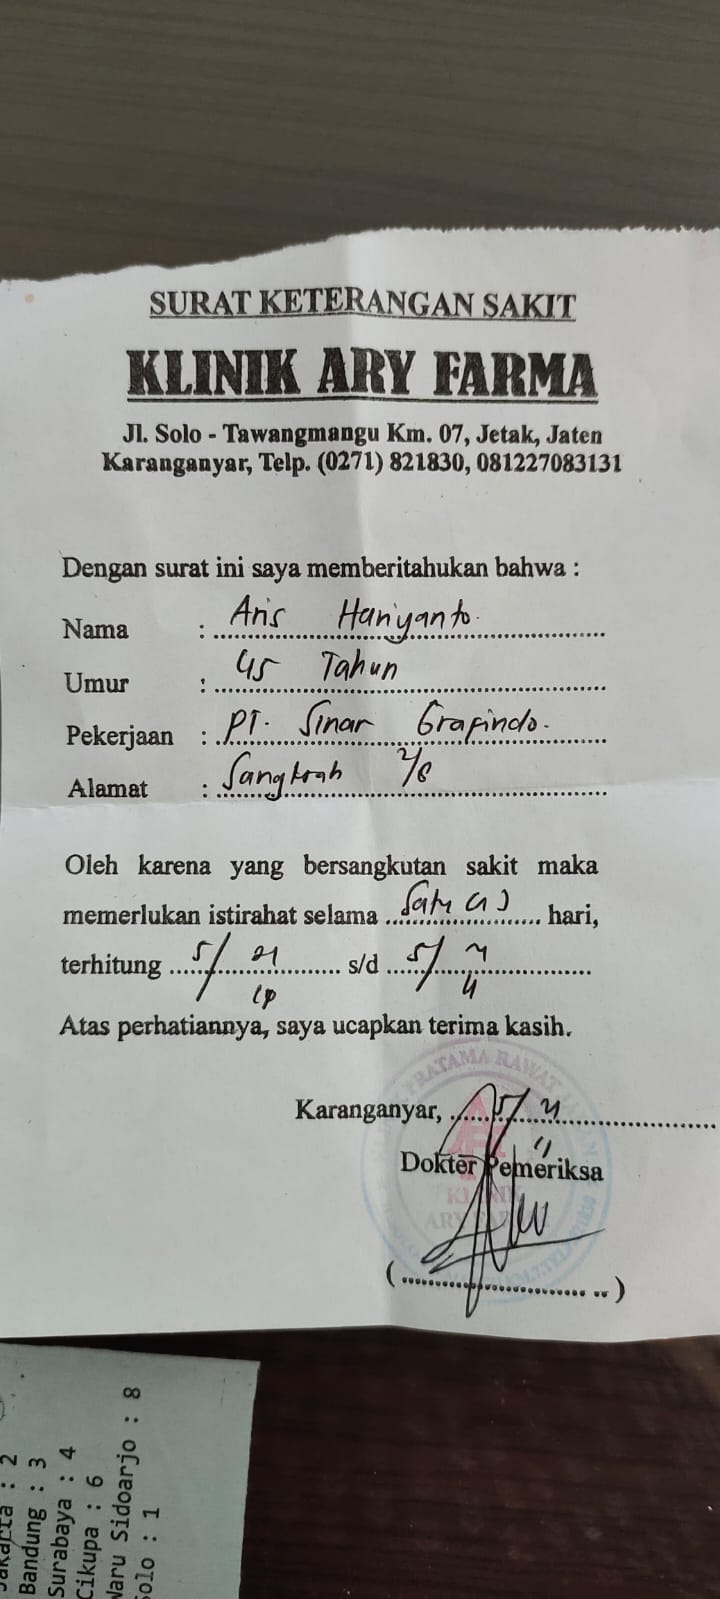 SURAT KETERANGAN SAKIT
KLINIK ARY FARMA
Jl. Solo - Tawangmangu Km. 07, Jetak, Jaten
Karanganyar, Telp. (0271) 821830, 081227083131
Dengan surat ini saya memberitahukan bahwa :
Nama : Aris Hariyanto.
Umur : 45 Tahun
Pekerjaan : PT. Sinar Grafindo.
Alamat : Sangkrah 2/6
Oleh karena yang bersangkutan sakit maka
memerlukan istirahat selama Satu (1) hari,
terhitung 5/ s/d 5/
Atas perhatiannya, saya ucapkan terima kasih.
Karanganyar, 5/
Dokter Pemeriksa
(.................................)
PRATAMA RAWAT
KLINIK
Bandung : 3
Surabaya : 4
Cikupa : 6
Waru Sidoarjo : 8
Solo : 1